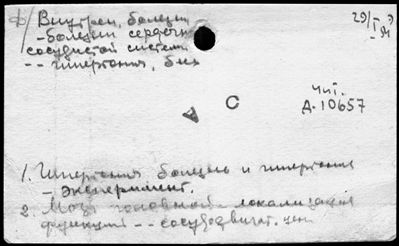 Ф/ Внутрен. болезни
- болезни сердечно
сосудистой системы
-- гипертония, бол
29/I
С
А
Чит.
Д. 10657
1. Гипертония болезнь и гипертония
- эксперимент.
2. Мозг головной - локализация
функций -- сосудодвигат. цен